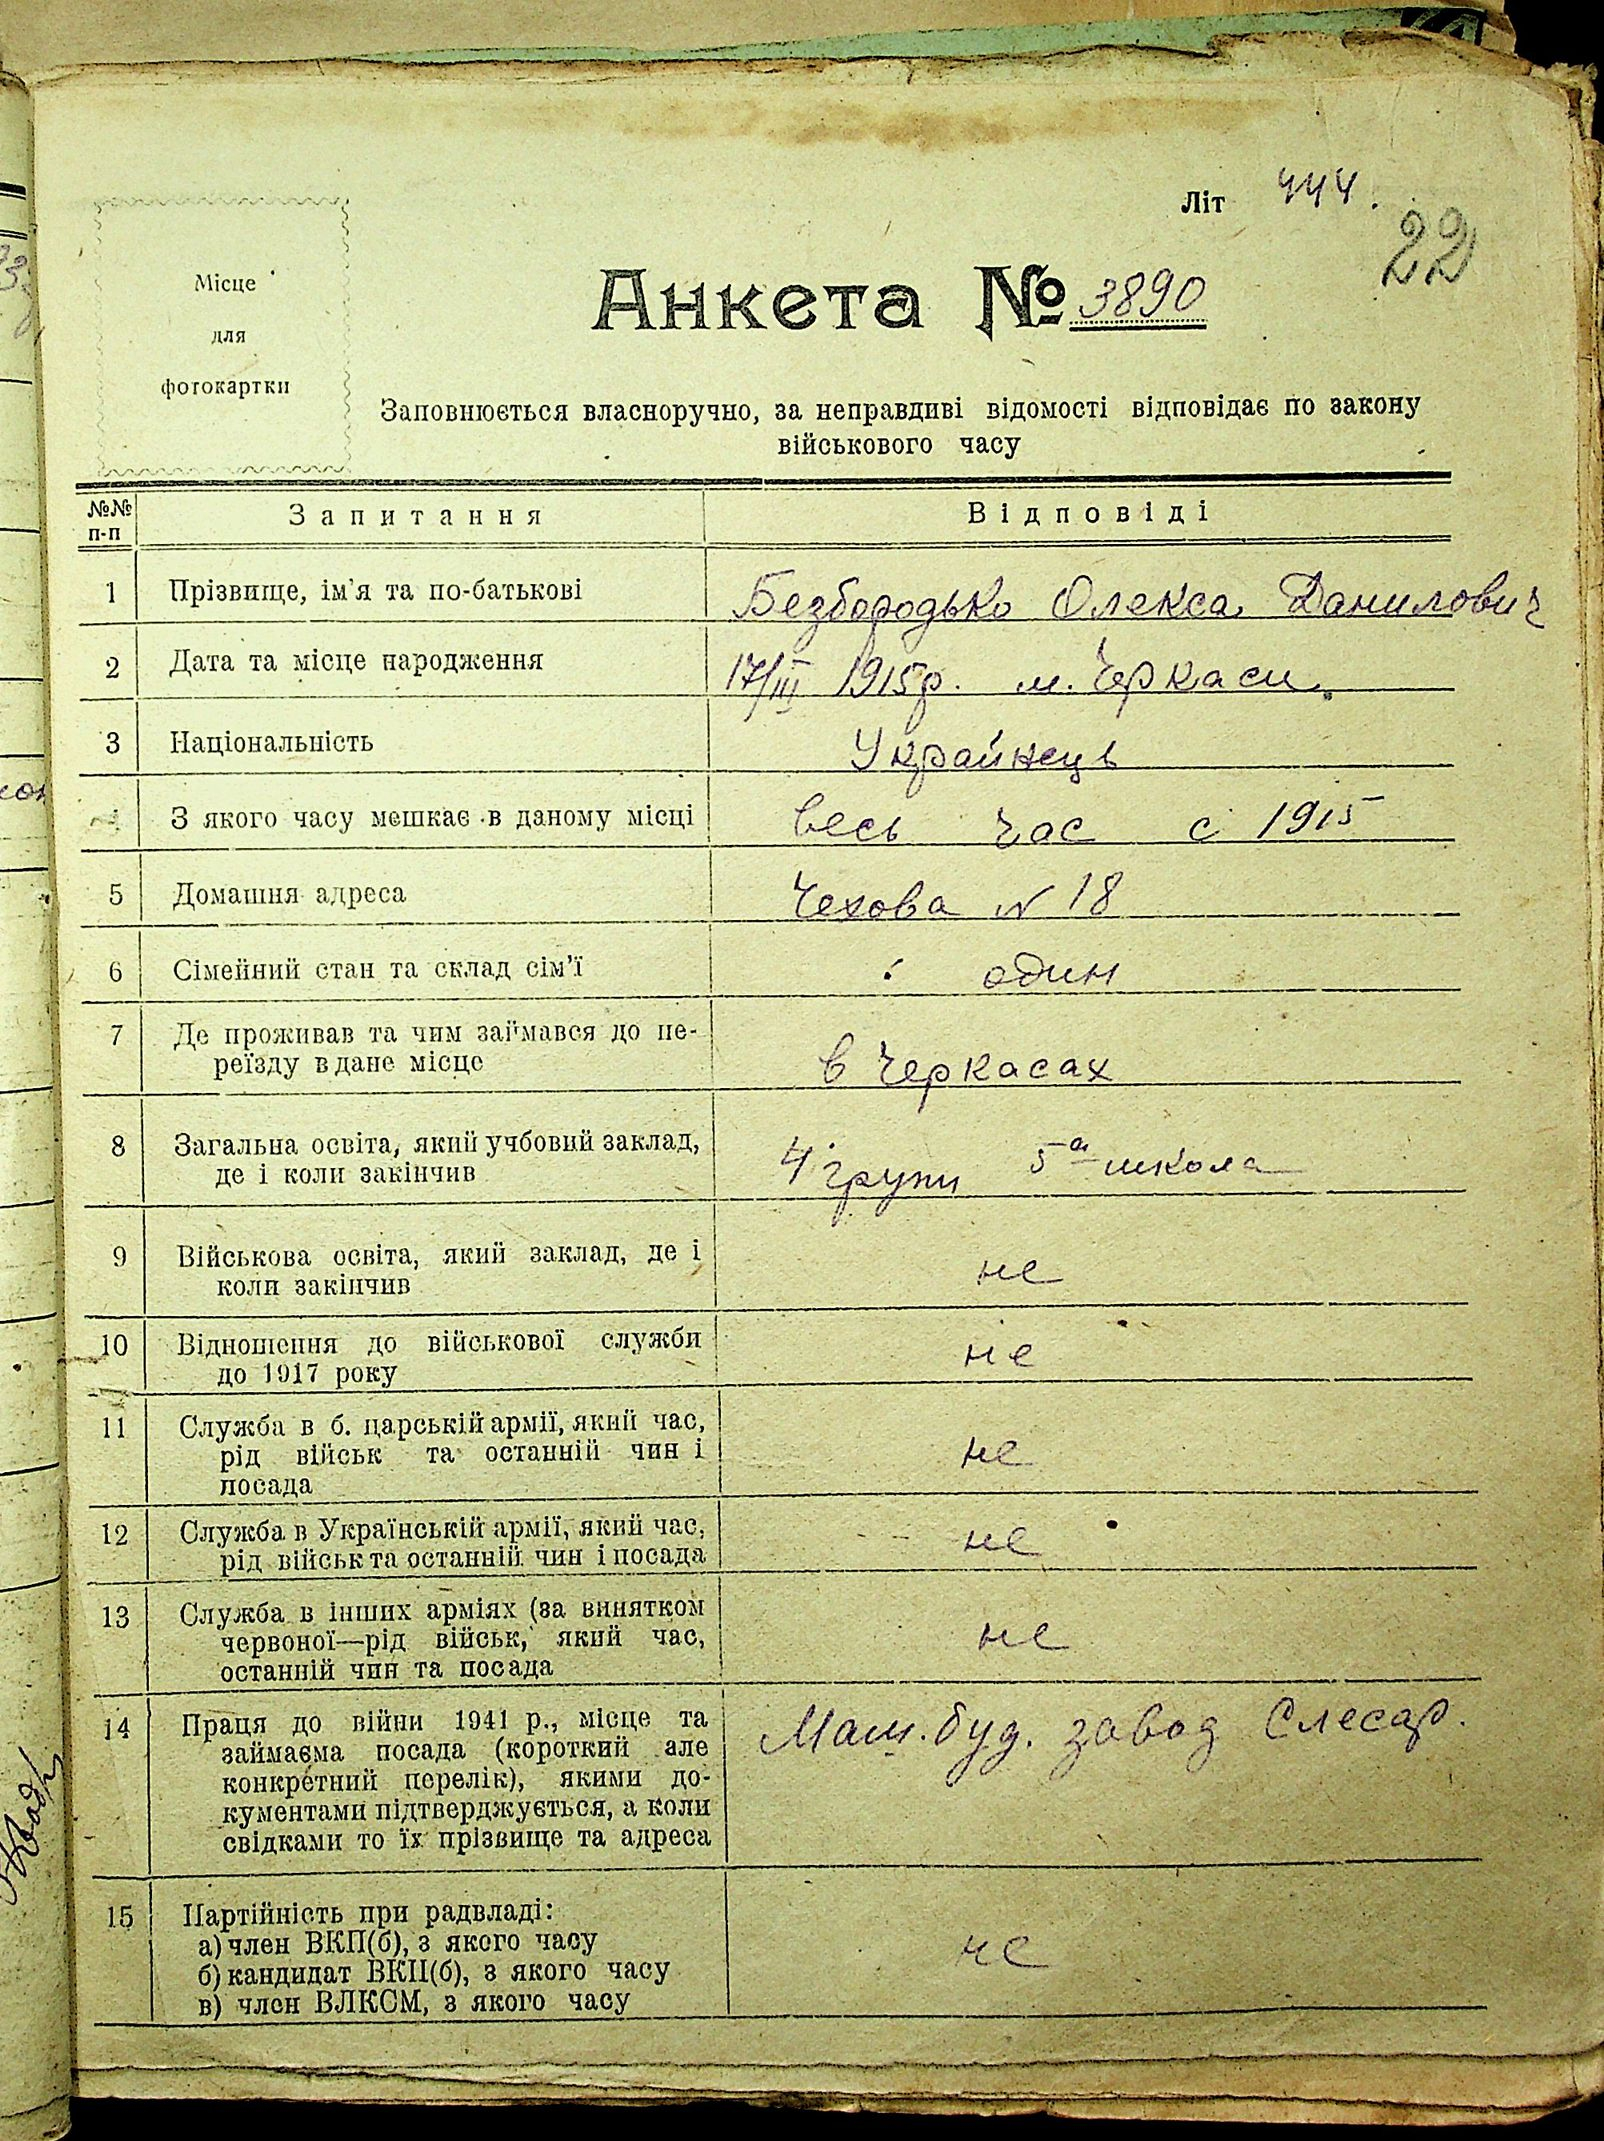 Літ 444.
22
Місце
для
фотокартки
Анкета № 3890
Заповнюється власноручно, за неправдиві відомості відповідає по закону
військового часу
№№ п-п Запитання Відповіді
1 Прізвище, ім'я та по-батькові Безбородько Олекса Данилович
2 Дата та місце народження 17/III 1915р. м. Черкаси
3 Національність Украйнець
З якого часу мешкає в даному місці весь час с 1915
5 Домашня адреса Чехова N 18
6 Сімейний стан та склад сім'ї один
7 Де проживав та чим займався до пе-
реїзду в дане місце в Черкасах
8 Загальна освіта, який учбовий заклад,
де і коли закінчив 4 групи 5а школа
9 Військова освіта, який заклад, де і
коли закінчив не
10 Відношення до військової служби
до 1917 року не
11 Служба в б. царській армії, який час,
рід військ та останній чин і
посада не
12 Служба в Українській армії, який час,
рід військ та останній чин і посада не
13 Служба в інших арміях (за винятком
червоної—рід військ, який час,
останній чин та посада не
14 Праця до війни 1941 р., місце та Маш.буд. завод Слесар.
займаєма посада (короткий але
конкретний перелік), якими до-
кументами підтверджується, а коли
свідками то їх прізвище та адреса
15 Партійність при радвладі:
а) член ВКП(б), з якого часу не
б) кандидат ВКП(б), з якого часу
в) член ВЛКСМ, з якого часу